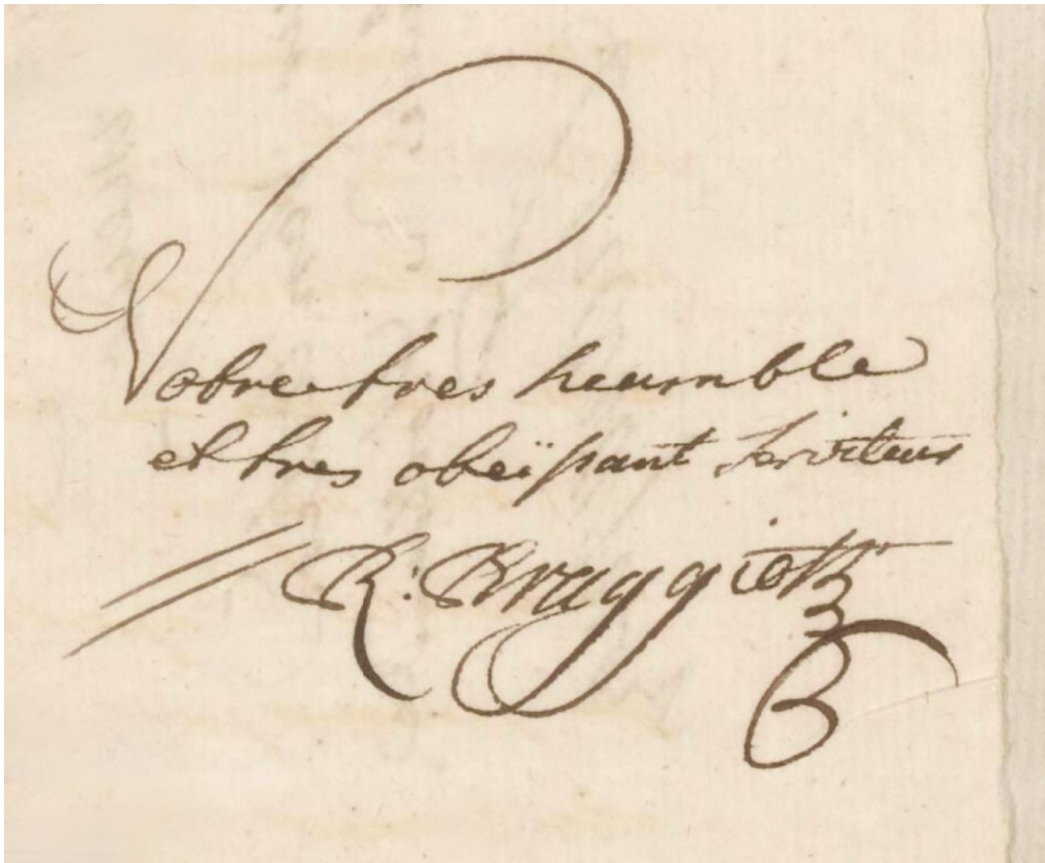 Votre tres heumble
et tres obeïssant serviteur
R: Braggiotti